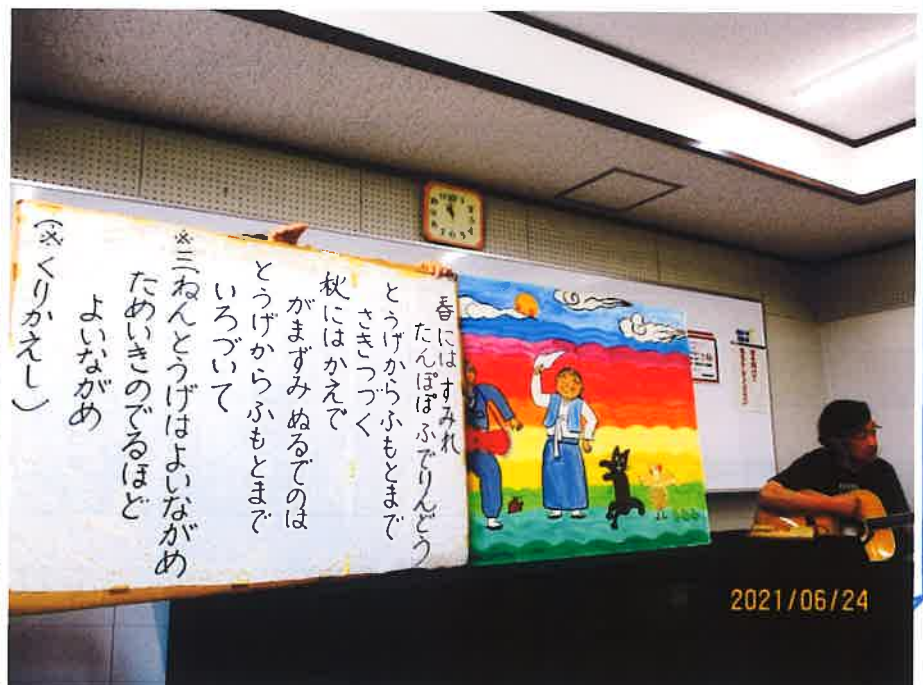 春には すみれ
たんぽぽ ふでりんどう
とうげからふもとまで
さきつづく
秋にはかえで
がまずみ ぬるでのは
とうげからふもとまで
いろづいて
※三ねんとうげはよいながめ
ためいきのでるほど
よいながめ
(※くりかえし)
2021/06/24